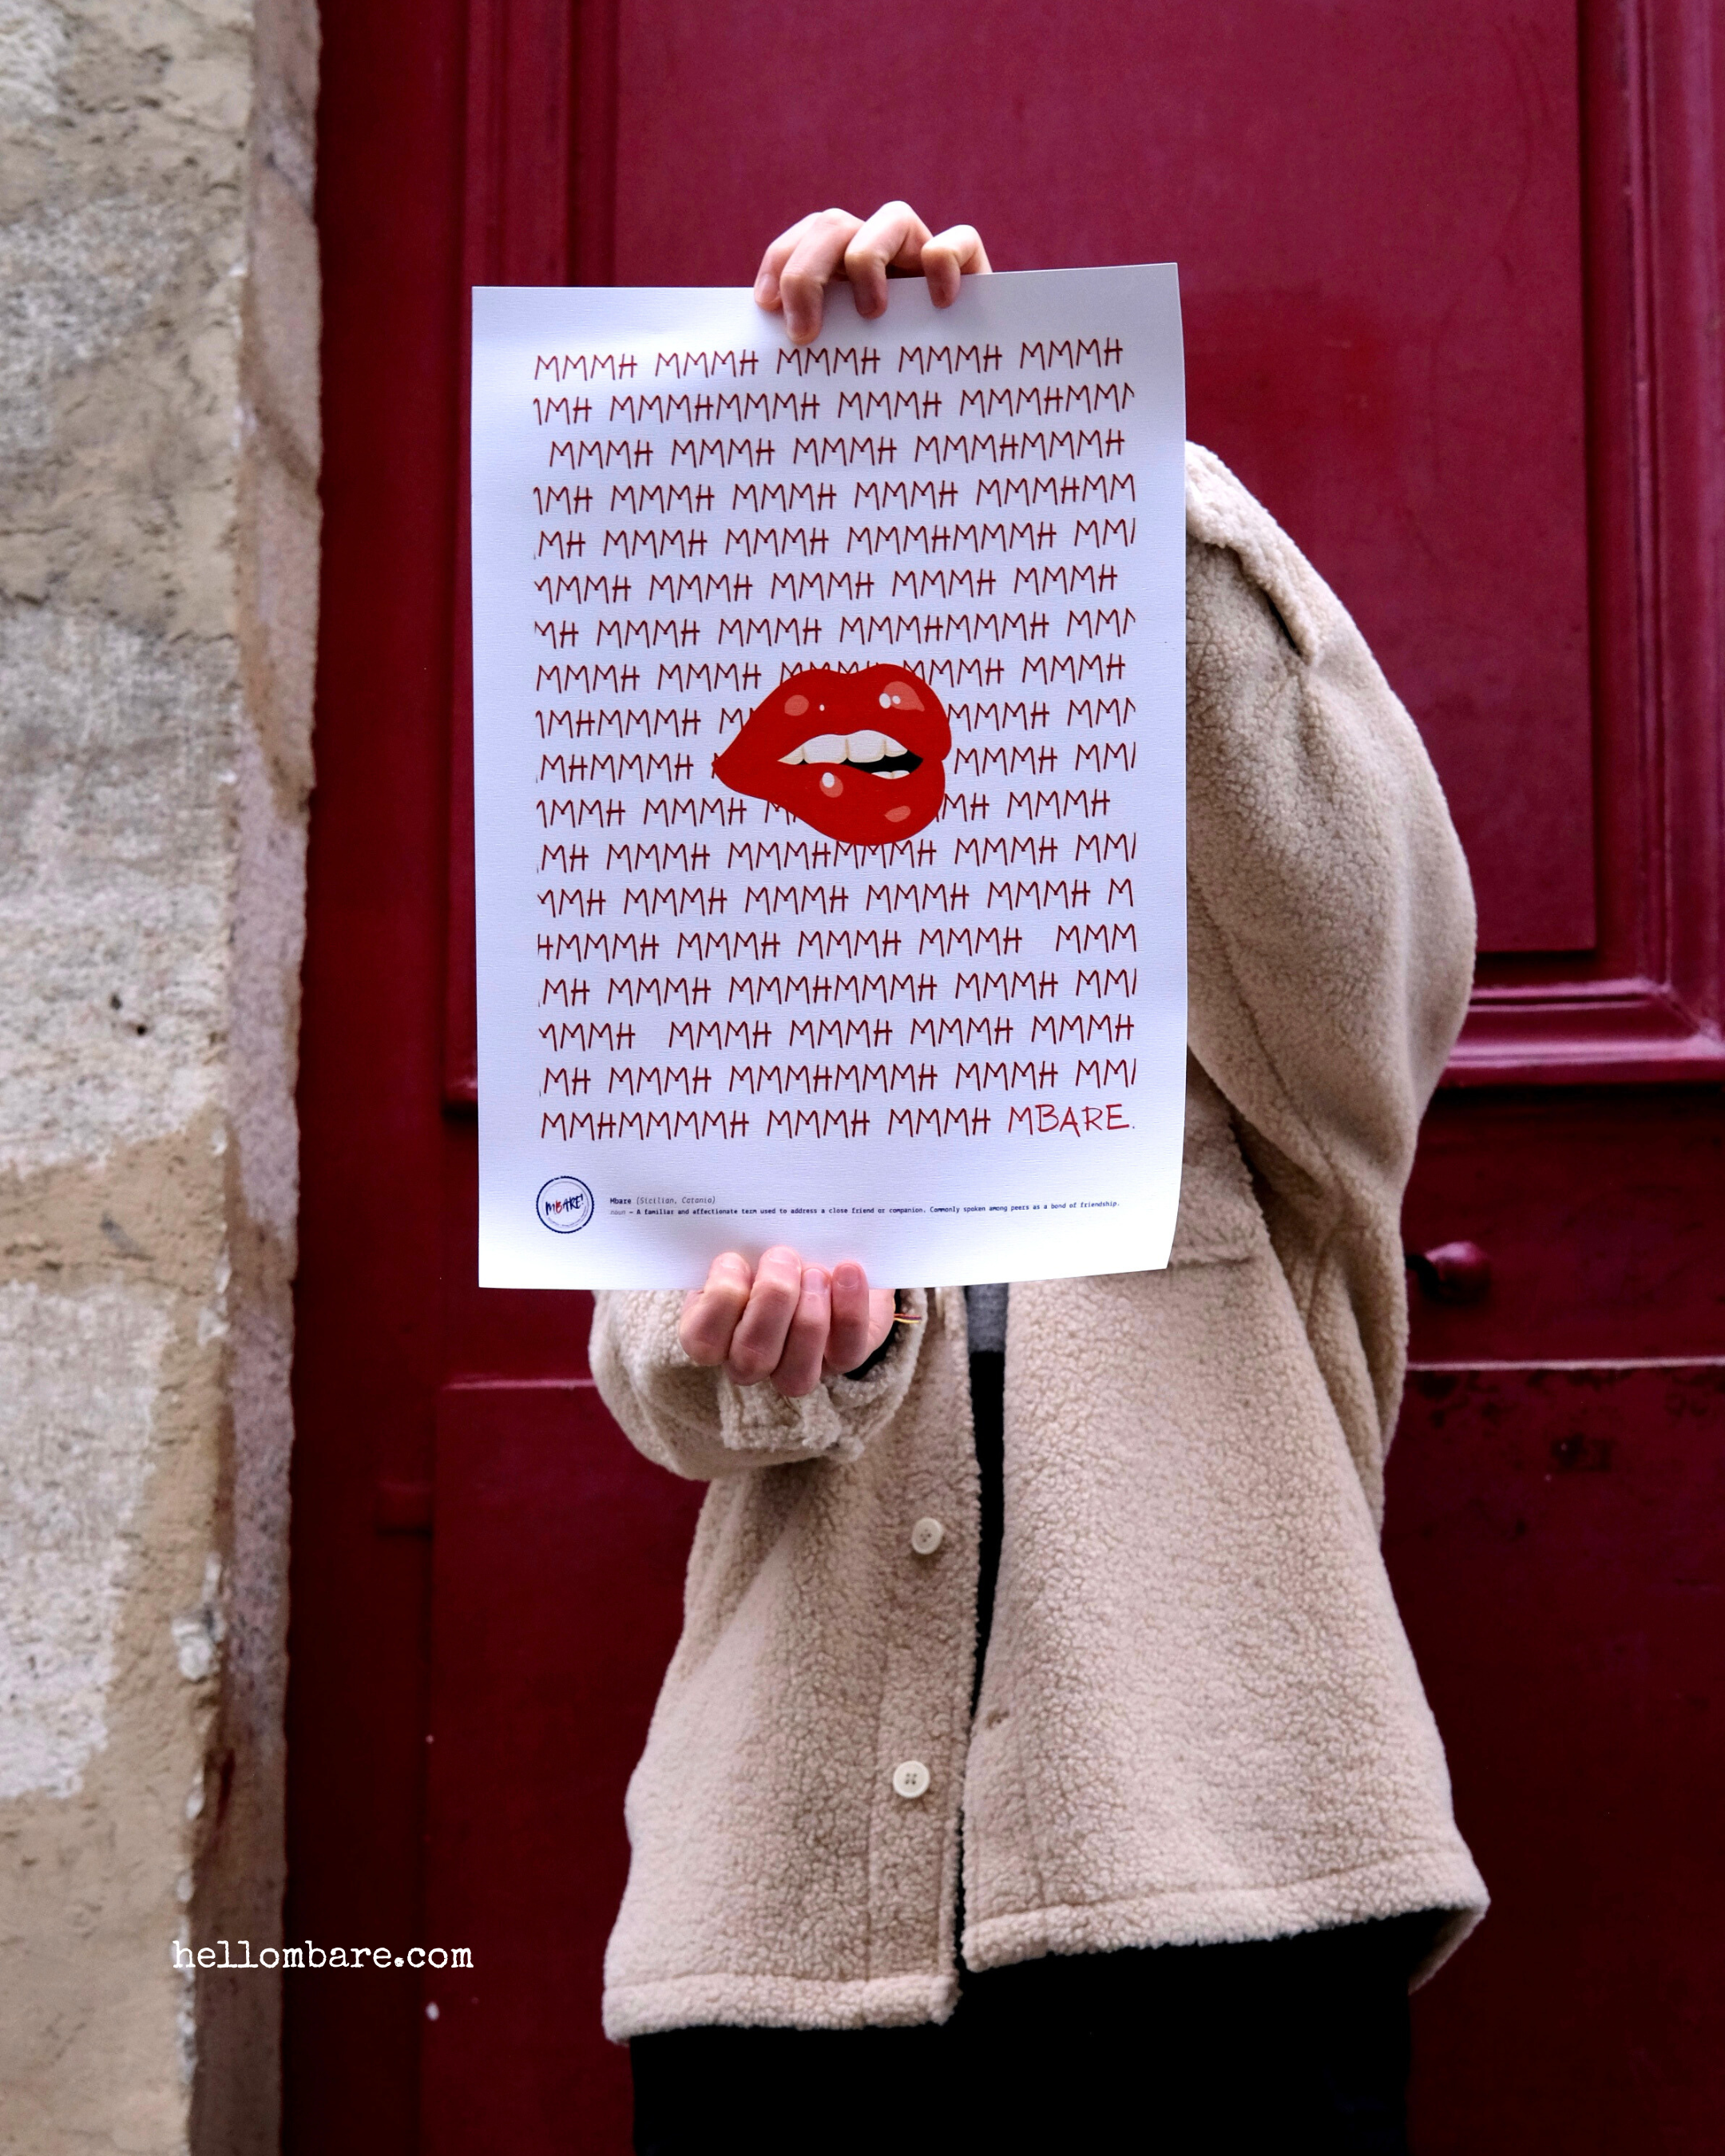 MMMH MMMH MMMH MMMH MMMH
MH MMMHMMMH MMMH MMMHMM
MMMH MMMH MMMH MMMHMMMH
MH MMMH MMMH MMMH MMMHMM
MH MMMH MMMH MMMHMMMH MM
MMH MMMH MMMH MMMH MMMH
MH MMMH MMMH MMMHMMMH MM
MMMH MMMH MMMH MMMH MMMH
MHMMMH M MMMH MM
MHMMMH MMMH MM
MMH MMMH M MH MMMH
MH MMMH MMMHMMMH MMMH MM
MH MMMH MMMH MMMH MMMH M
HMMMH MMMH MMMH MMMH MMM
MH MMMH MMMHMMMH MMMH MM
MMH MMMH MMMH MMMH MMMH
MH MMMH MMMHMMMH MMMH MM
MMHMMMMH MMMH MMMH MBARE.
MBARE!
Mbare (Sicilian, Catania)
noun — A familiar and affectionate term used to address a close friend or companion. Commonly spoken among peers as a bond of friendship.
hellombare.com